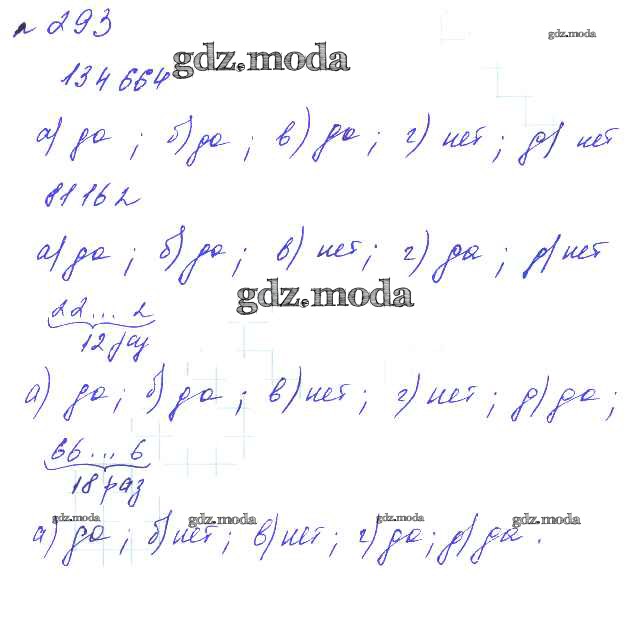 № 293
gdz.moda
134 664
gdz.moda
а) да ; б) да ; в) да ; г) нет ; д) нет
81162
а) да ; б) да ; в) нет ; г) да ; д) нет
gdz.moda
22... 2
12 раз
а) да ; б) да ; в) нет ; г) нет ; д) да ;
66... 6
18 раз
gdz.moda gdz.moda gdz.moda gdz.moda
а) да ; б) нет ; в) нет ; г) да ; д) да .